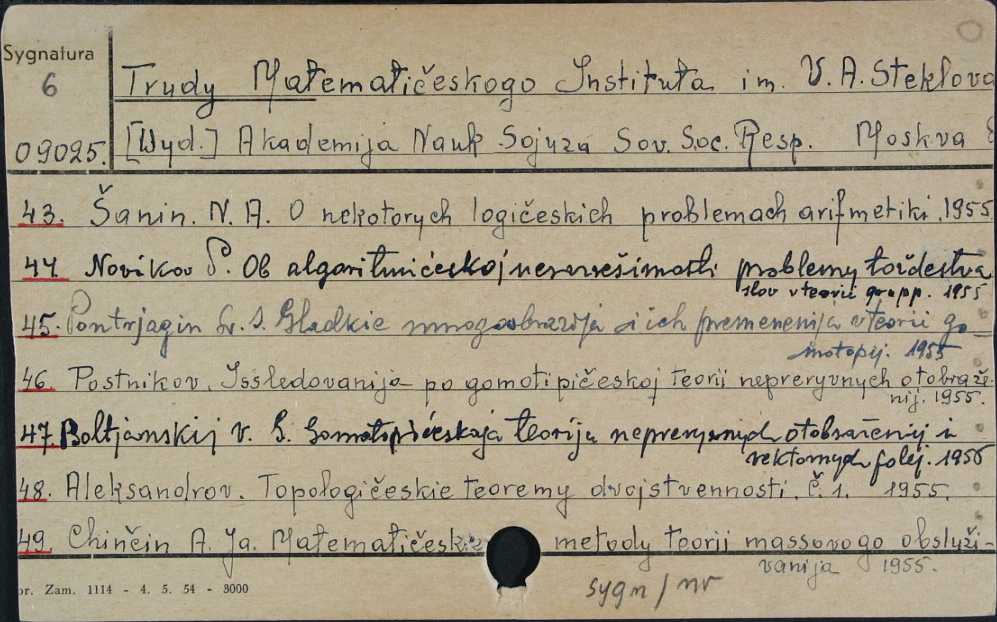 Sygnatura
6
09025.
Trudy Matematičeskogo Instituta im. V. A. Steklova
[Wyd.] Akademija Nauk Sojuza Sov. Soc. Resp. Moskva
43. Šanin. N. A. O nekotorych logičeskich problemach arifmetiki. 1955
44. Novikov P. Ob algoritmičeskoj nerazrešimosti problemy toždestva
slov v teorii grupp. 1955
45. Pontrjagin L. S. Gladkie mnogoobrazija i ich premenenija v teorii go
motopij. 1955
46. Postnikov. Issledovanija po gomotipičeskoj teorii nepreryvnych otobraže-
nij. 1955.
47. Boltjanskij V. G. Gomotopičeskaja teorija nepreryvnych otobraženij i
vektornych polej. 1955
48. Aleksandrov. Topologičeskie teoremy dvojstvennosti. č. 1. 1955.
49. Chinčin A. Ja. metody teorii massovogo obsluži-
vanija 1955.
or. Zam. 1114 - 4. 5. 54 - 3000
sygn / nr